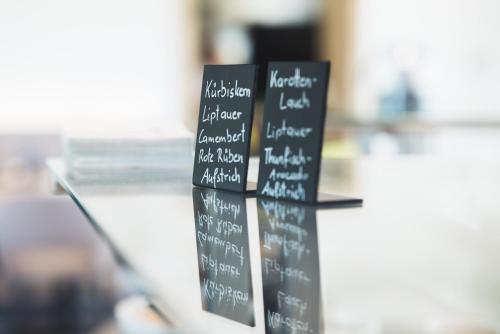 Kürbiskern
Liptauer
Camembert
Rote Rüben
Aufstrich
Karotten-
Lauch
Liptauer
Thunfisch-
Avocado-
Aufstrich